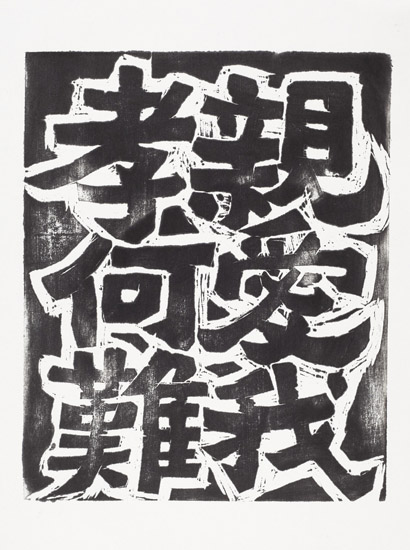 親愛我
孝何難